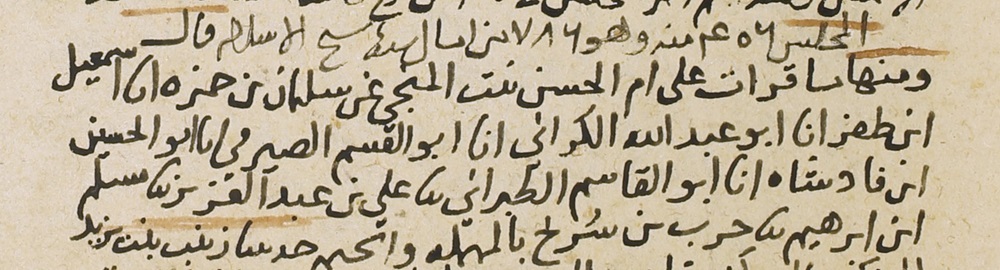 المجلس ٥٦ عم منه وهو ٧٨٦ من امالى شيخ الاسلام قال
ومنها سا قرات على ام الحسن بنت المنجى عن سليمان بن حمزه انا اسمعيل
ابن ظفر انا ابو عبد الله الكرانى انا ابو القسم الصيرفى انا ابو الحسين
ابن فادشاه انا ابو القاسم الطبرانى سا على بن عبد العزيز سا مسلم
ابن ابرهيم سا حرب بن سُرَيج بالمهمله والجيم حدثتنا زينب بنت يزيد